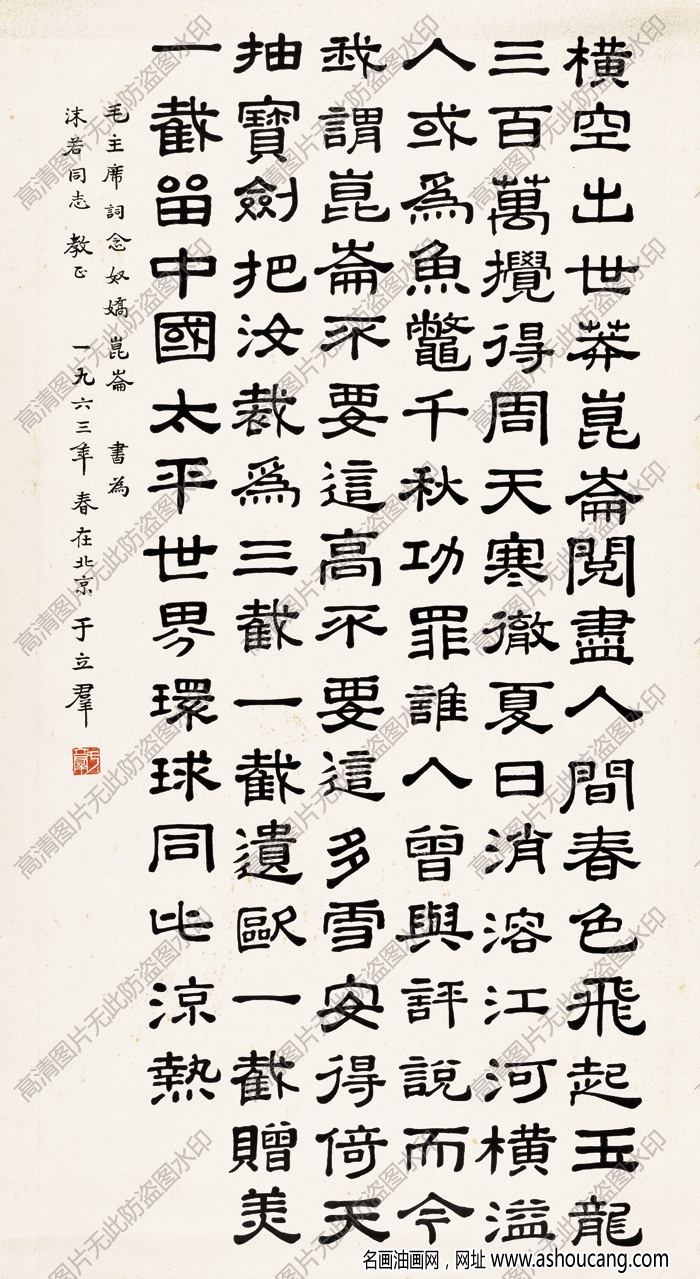 橫空出世莽崑崙閱盡人間春色飛起玉龍
三百萬攪得周天寒徹夏日消溶江河橫溢
人或爲魚鼈千秋功罪誰人曾與評說而今
我謂崑崙不要這高不要這多雪安得倚天
抽寶劍把汝裁爲三截一截遺歐一截贈美
一截留中國太平世界環球同此涼熱
毛主席詞念奴嬌崑崙 書為
沫若同志 教正 一九六三年春在北京 于立羣
高清图片无此防盗图水印
名画油画网，网址 www.ashoucang.com